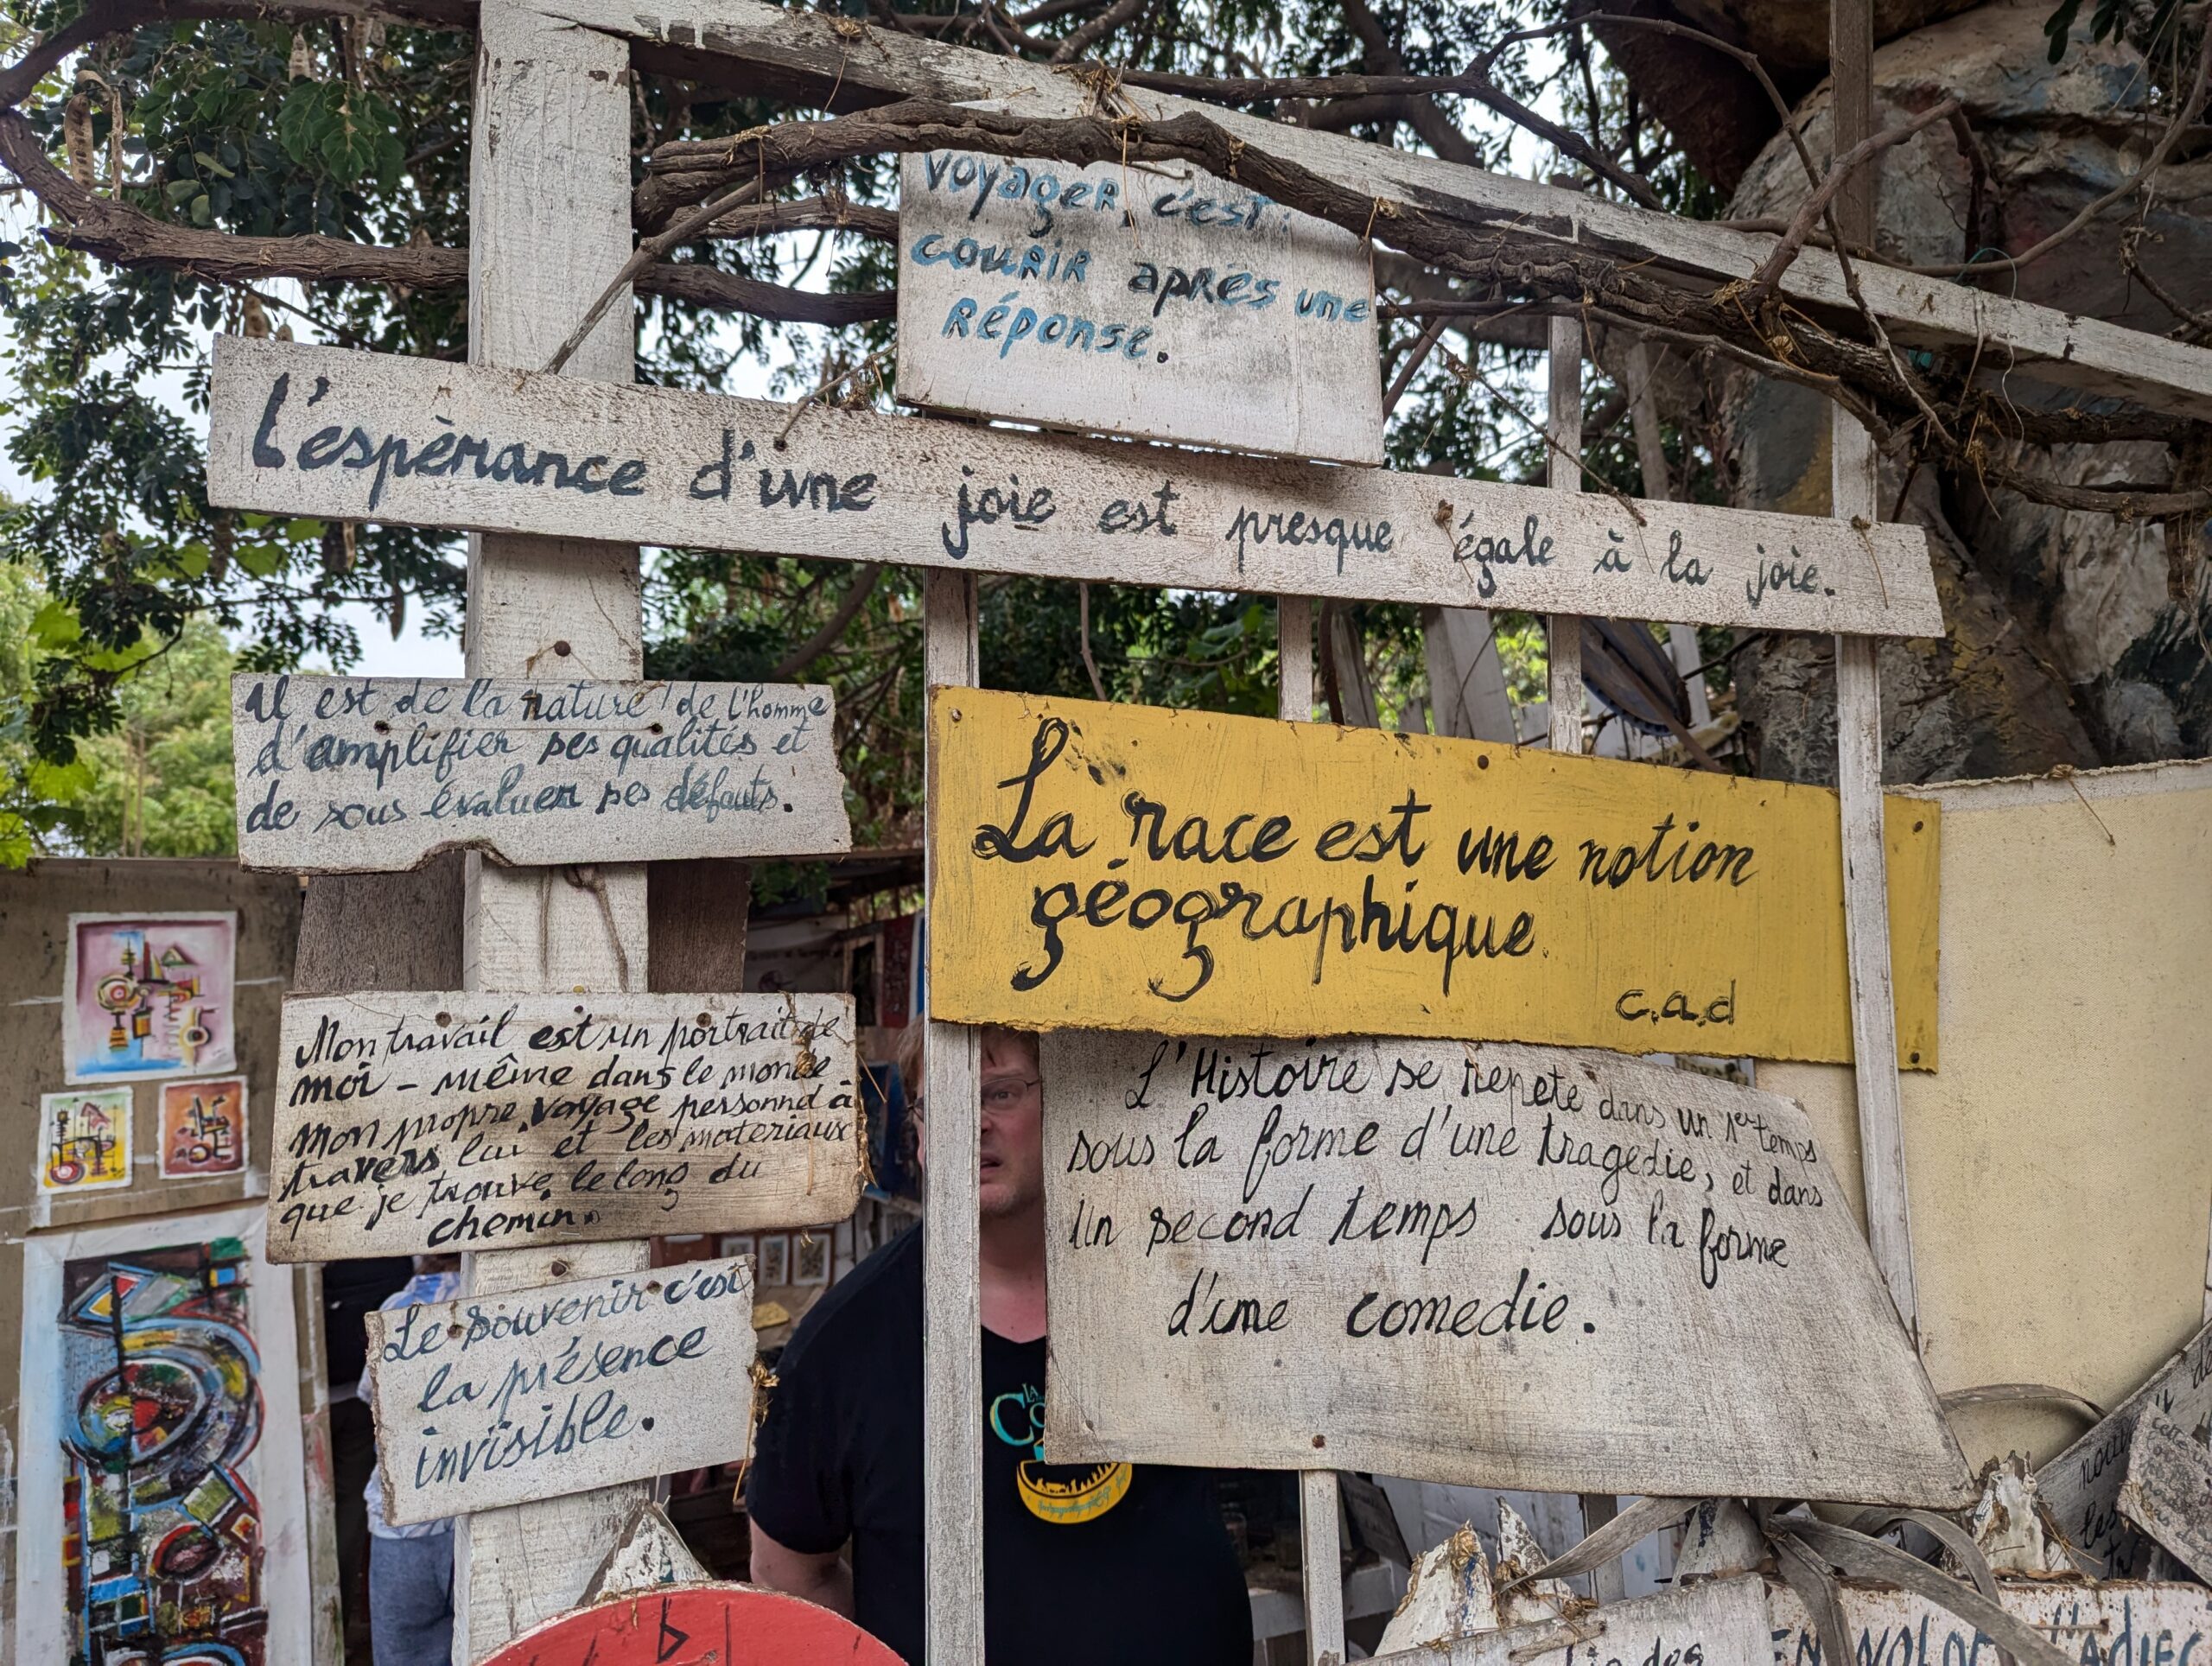 Voyager, c'est:
courir après une
Réponse.
L'espèrance d'une joie est presque égale à la joie.
Il est de la nature de l'homme
d'amplifier ses qualités et
de sous évaluer ses défauts.
La race est une notion
géographique.
c.a.d
Mon travail est un portrait de
moi - même dans le monde
Mon propre voyage personnel à
travers lui et les materiaux
que je trouve le long du
chemin.
L'Histoire se repete dans un 1er temps
sous la forme d'une tragedie, et dans
Un second temps sous la forme
d'une comedie.
Le Souvenir c'est
la présence
invisible.
LA
des